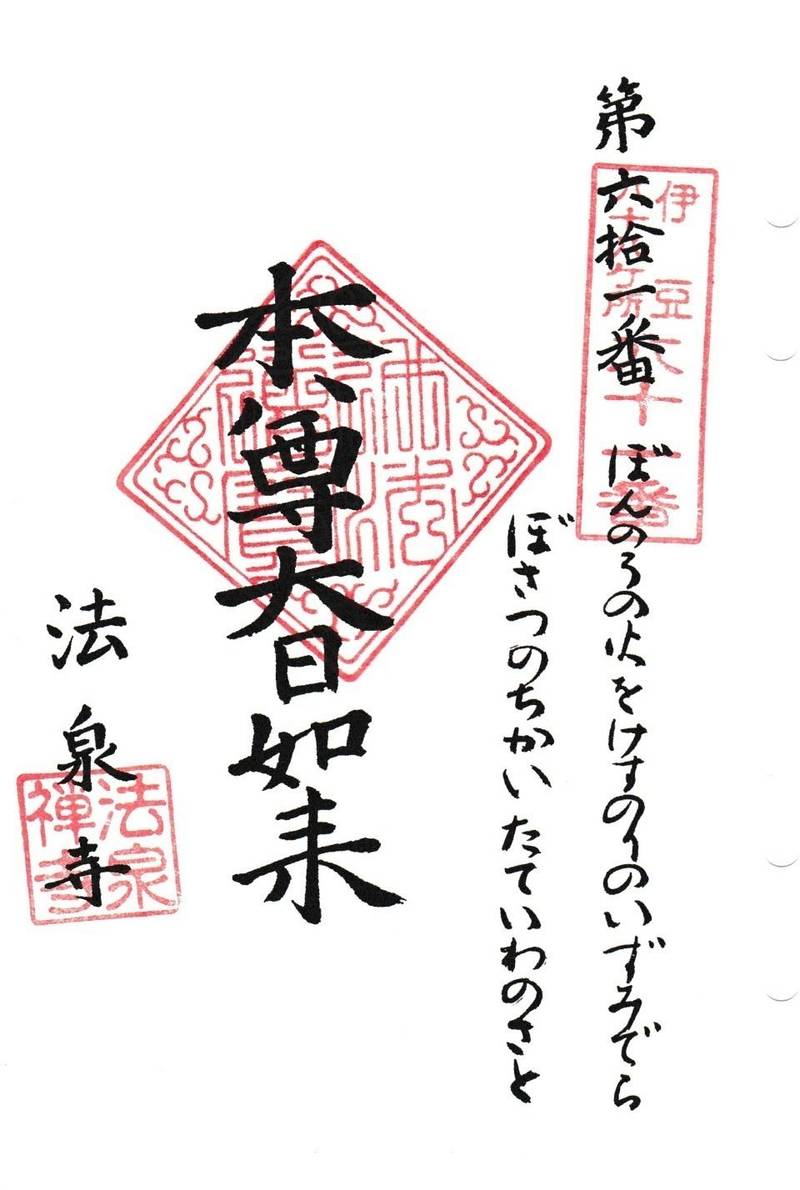 第六拾一番
ぼんのうの火をけすのりのいずみでら
ぼさつのちかいたていわのさと
本尊大日如来
法泉寺
伊豆八十八ヶ所
六十一番
佛法僧寳
法泉禅寺